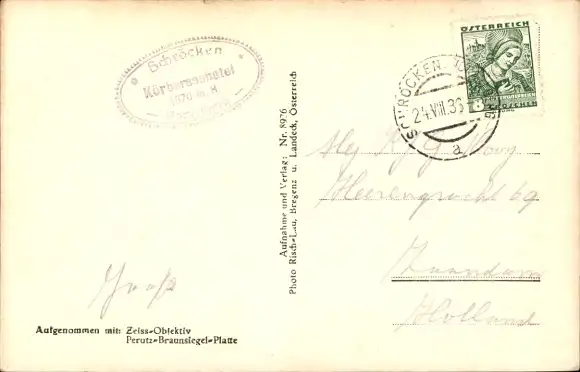 Schröcken
Körberseehotel
1676 m. ü.
ÖSTERREICH
SCHRÖCKEN
24.VIII.36
a
8
GROSCHEN
Aufnahme und Verlag: Nr. 8976
Photo Risch-Lau, Bregenz u. Landeck, Österreich
Heerengracht 69
Zaandam
Holland
Gruß
Aufgenommen mit: Zeiss-Objektiv
Perutz-Braunsiegel-Platte